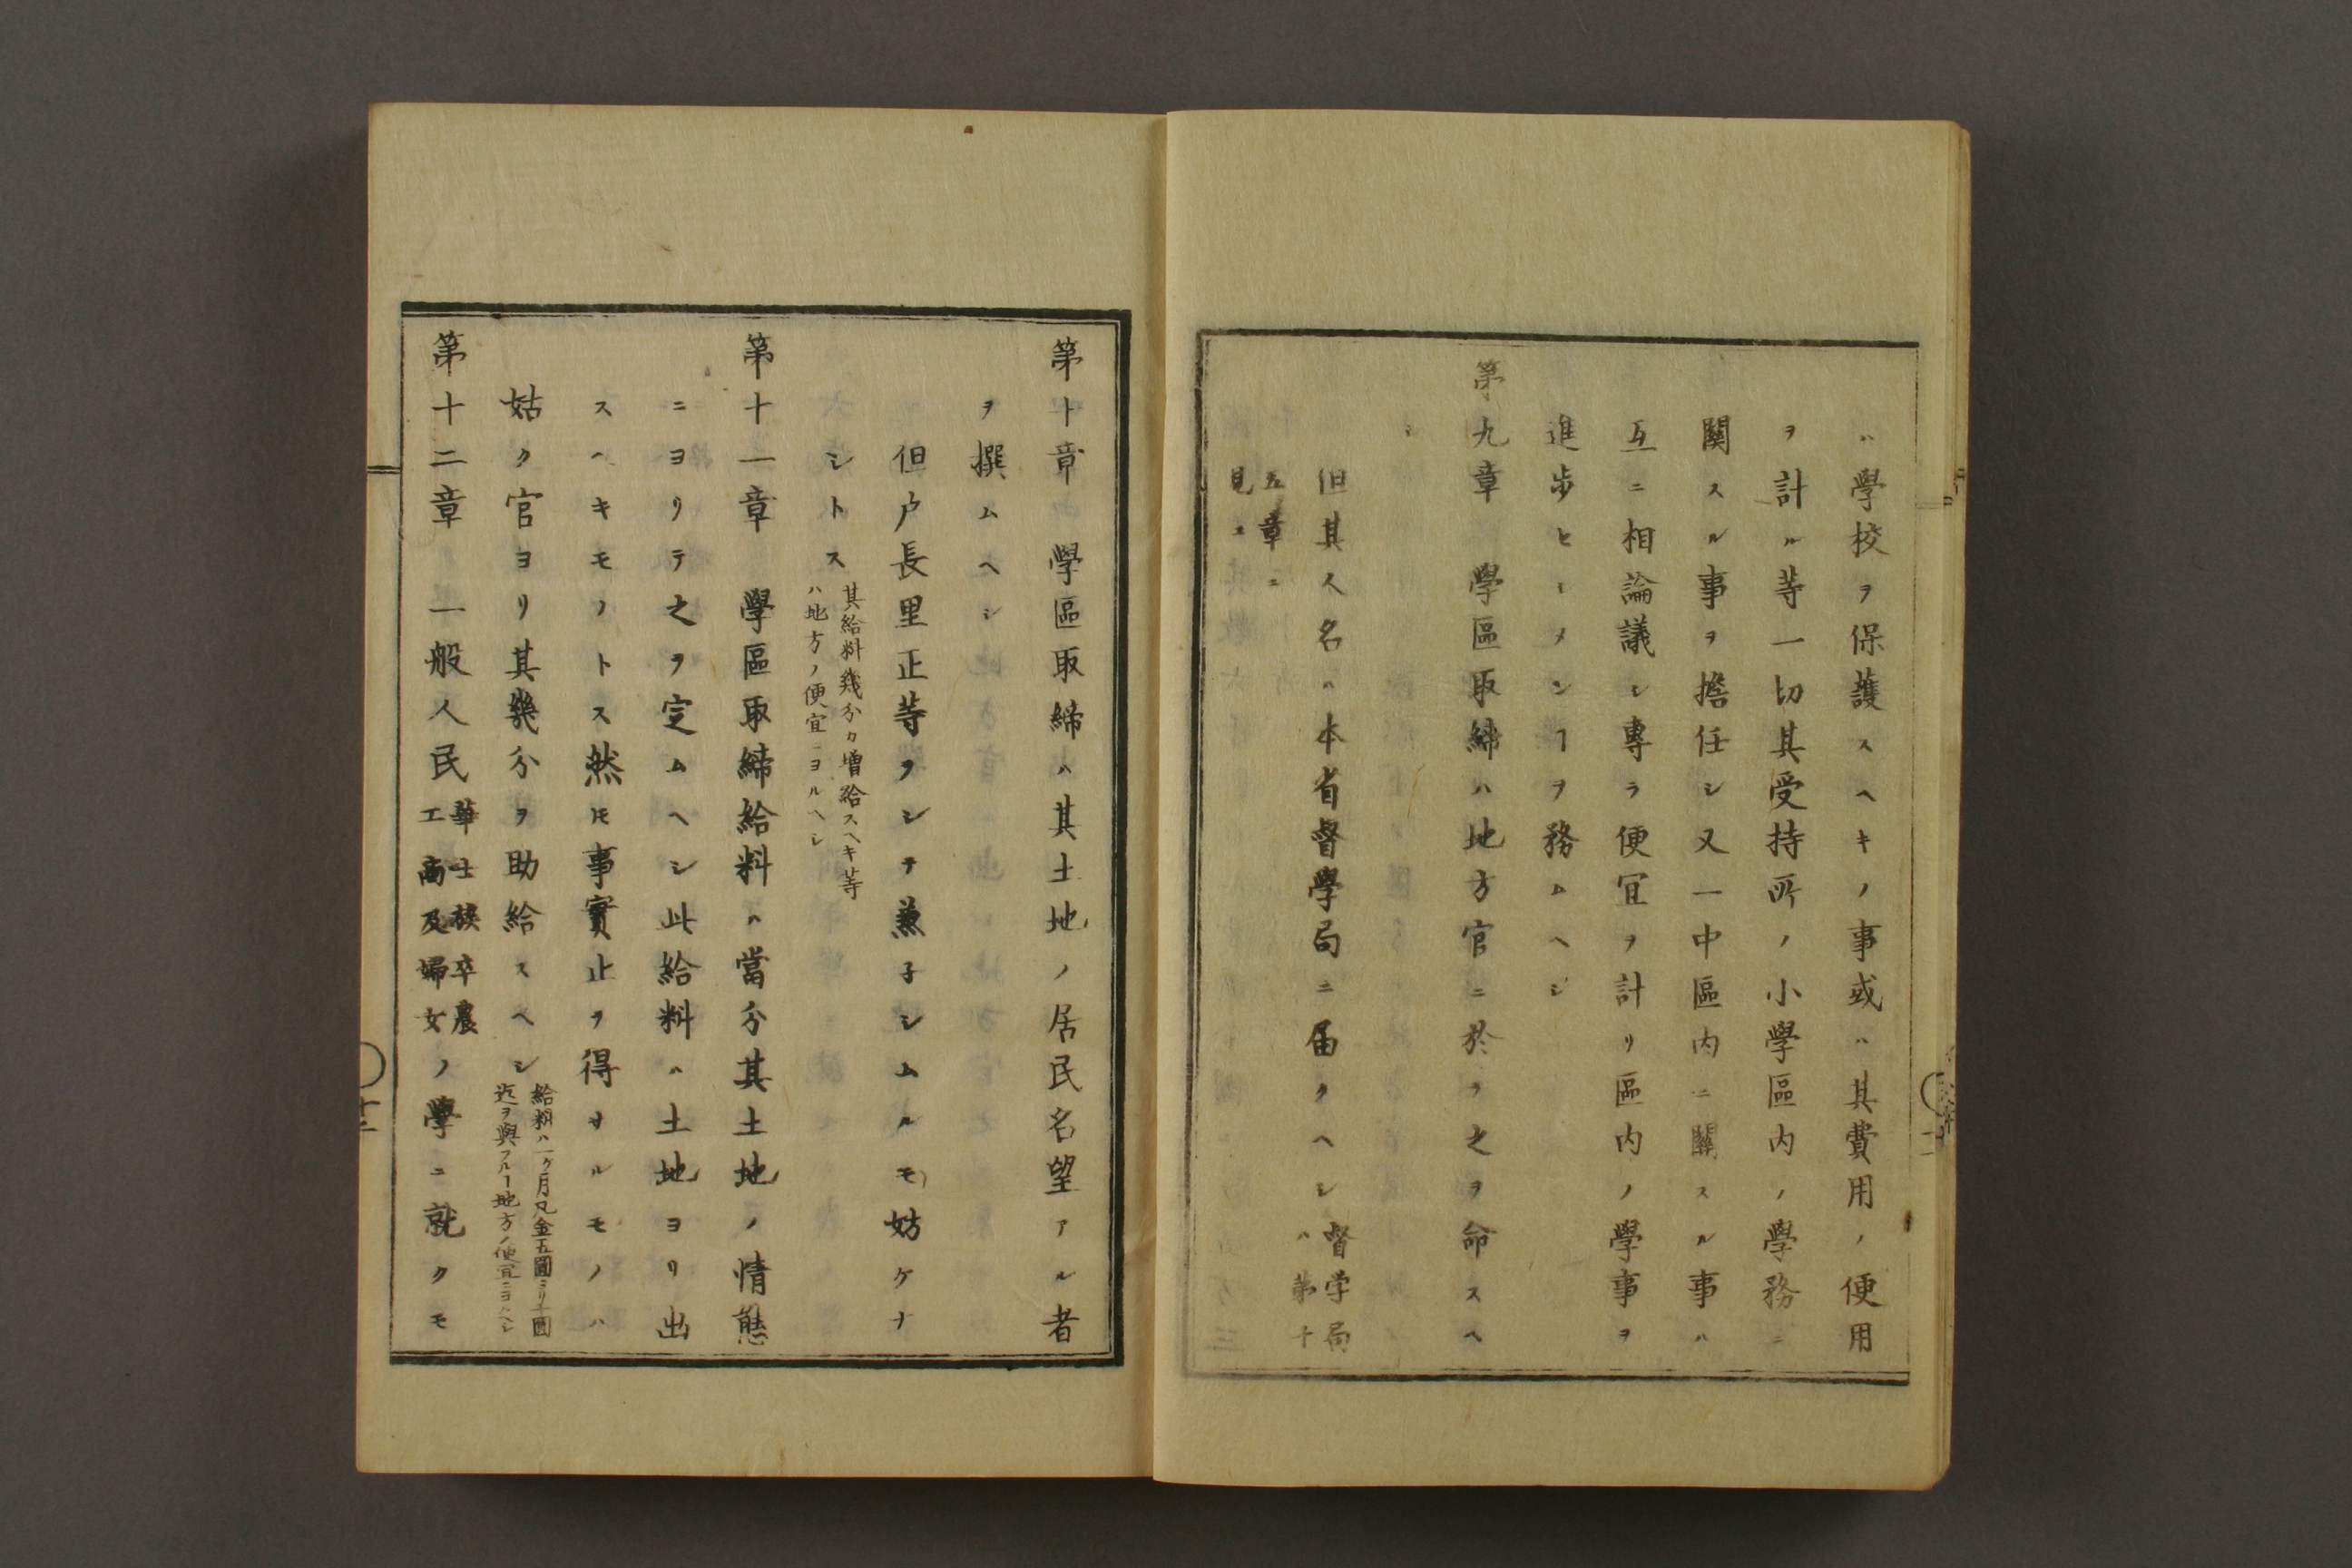 ハ學校ヲ保護スヘキノ事或ハ其費用ノ便用
ヲ計ル等一切其受持所ノ小學區内ノ學務ニ
關スル事ヲ擔任シ又一中區内ニ關スル事ハ
互ニ相論議シ專ラ便宜ヲ計リ區内ノ學事ヲ
進歩セシメンヿヲ務ムヘシ
第九章 學區取締ハ地方官ニ於テ之ヲ命スヘ
シ
但其人名ハ本省督學局ニ届クヘシ督学局
ハ第十
五章ニ
見ユ
第十章 學區取締ハ其土地ノ居民名望アル者
ヲ撰ムヘシ
但戸長里正等ヲシテ兼子シムルモ妨ケナ
シトス其給料幾分カ増給スヘキ等
ハ地方ノ便宜ニヨルヘシ
第十一章 學區取締給料ハ當分其土地ノ情態
ニヨリテ之ヲ定ムヘシ此給料ハ土地ヨリ出
スヘキモノトス然𪜈事實止ヲ得サルモノハ
姑ク官ヨリ其幾分ヲ助給スヘシ給料ハ一ケ月凡金五圓ヨリ十圓
迄ヲ與フルヿ地方ノ便宜ニヨルヘシ
第十二章 一般人民華士族卒農
工商及婦女ノ學ニ就クモ